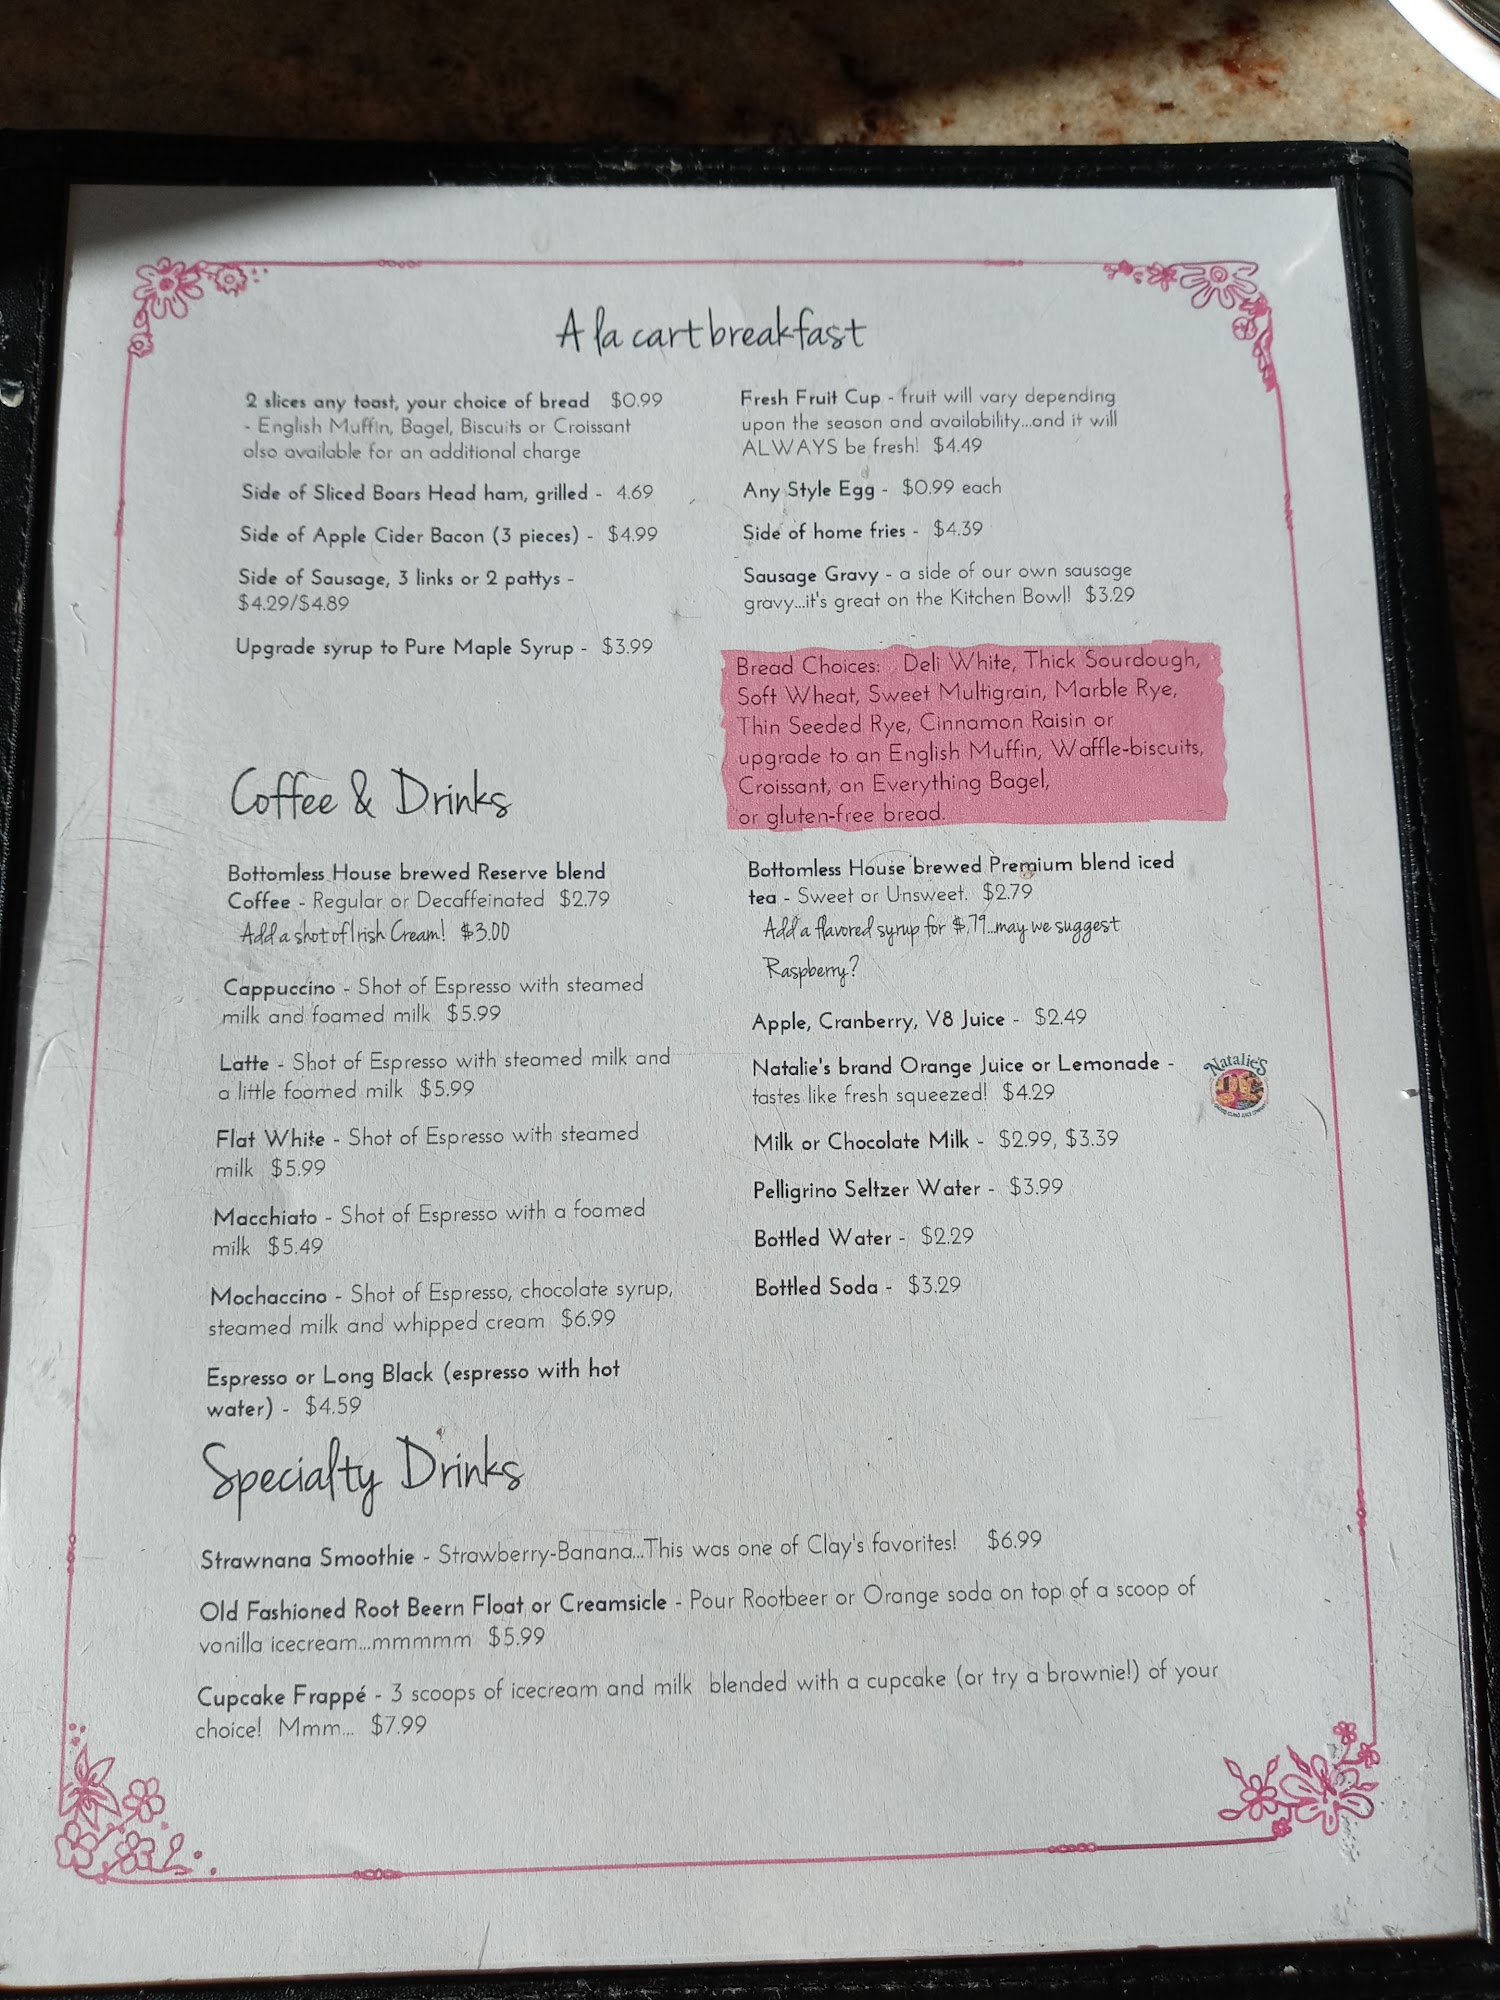 A la cart breakfast
2 slices any toast, your choice of bread $0.99
- English Muffin, Bagel, Biscuits or Croissant
also available for an additional charge
Side of Sliced Boars Head ham, grilled - 4.69
Side of Apple Cider Bacon (3 pieces) - $4.99
Side of Sausage, 3 links or 2 pattys -
$4.29/$4.89
Upgrade syrup to Pure Maple Syrup - $3.99
Fresh Fruit Cup - fruit will vary depending
upon the season and availability...and it will
ALWAYS be fresh! $4.49
Any Style Egg - $0.99 each
Side of home fries - $4.39
Sausage Gravy - a side of our own sausage
gravy...it's great on the Kitchen Bowl! $3.29
Bread Choices: Deli White, Thick Sourdough,
Soft Wheat, Sweet Multigrain, Marble Rye,
Thin Seeded Rye, Cinnamon Raisin or
upgrade to an English Muffin, Waffle-biscuits,
Croissant, an Everything Bagel,
or gluten-free bread.
Coffee & Drinks
Bottomless House brewed Reserve blend
Coffee - Regular or Decaffeinated $2.79
Add a shot of Irish Cream! $3.00
Cappuccino - Shot of Espresso with steamed
milk and foamed milk $5.99
Latte - Shot of Espresso with steamed milk and
a little foamed milk $5.99
Flat White - Shot of Espresso with steamed
milk $5.99
Macchiato - Shot of Espresso with a foamed
milk $5.49
Mochaccino - Shot of Espresso, chocolate syrup,
steamed milk and whipped cream $6.99
Espresso or Long Black (espresso with hot
water) - $4.59
Bottomless House brewed Premium blend iced
tea - Sweet or Unsweet. $2.79
Add a flavored syrup for $.79...may we suggest
Raspberry?
Apple, Cranberry, V8 Juice - $2.49
Natalie's brand Orange Juice or Lemonade -
tastes like fresh squeezed! $4.29
Natalie's
Milk or Chocolate Milk - $2.99, $3.39
Pelligrino Seltzer Water - $3.99
Bottled Water - $2.29
Bottled Soda - $3.29
Specialty Drinks
Strawnana Smoothie - Strawberry-Banana...This was one of Clay's favorites! $6.99
Old Fashioned Root Beern Float or Creamsicle - Pour Rootbeer or Orange soda on top of a scoop of
vanilla icecream...mmmmm $5.99
Cupcake Frappé - 3 scoops of icecream and milk blended with a cupcake (or try a brownie!) of your
choice! Mmm... $7.99